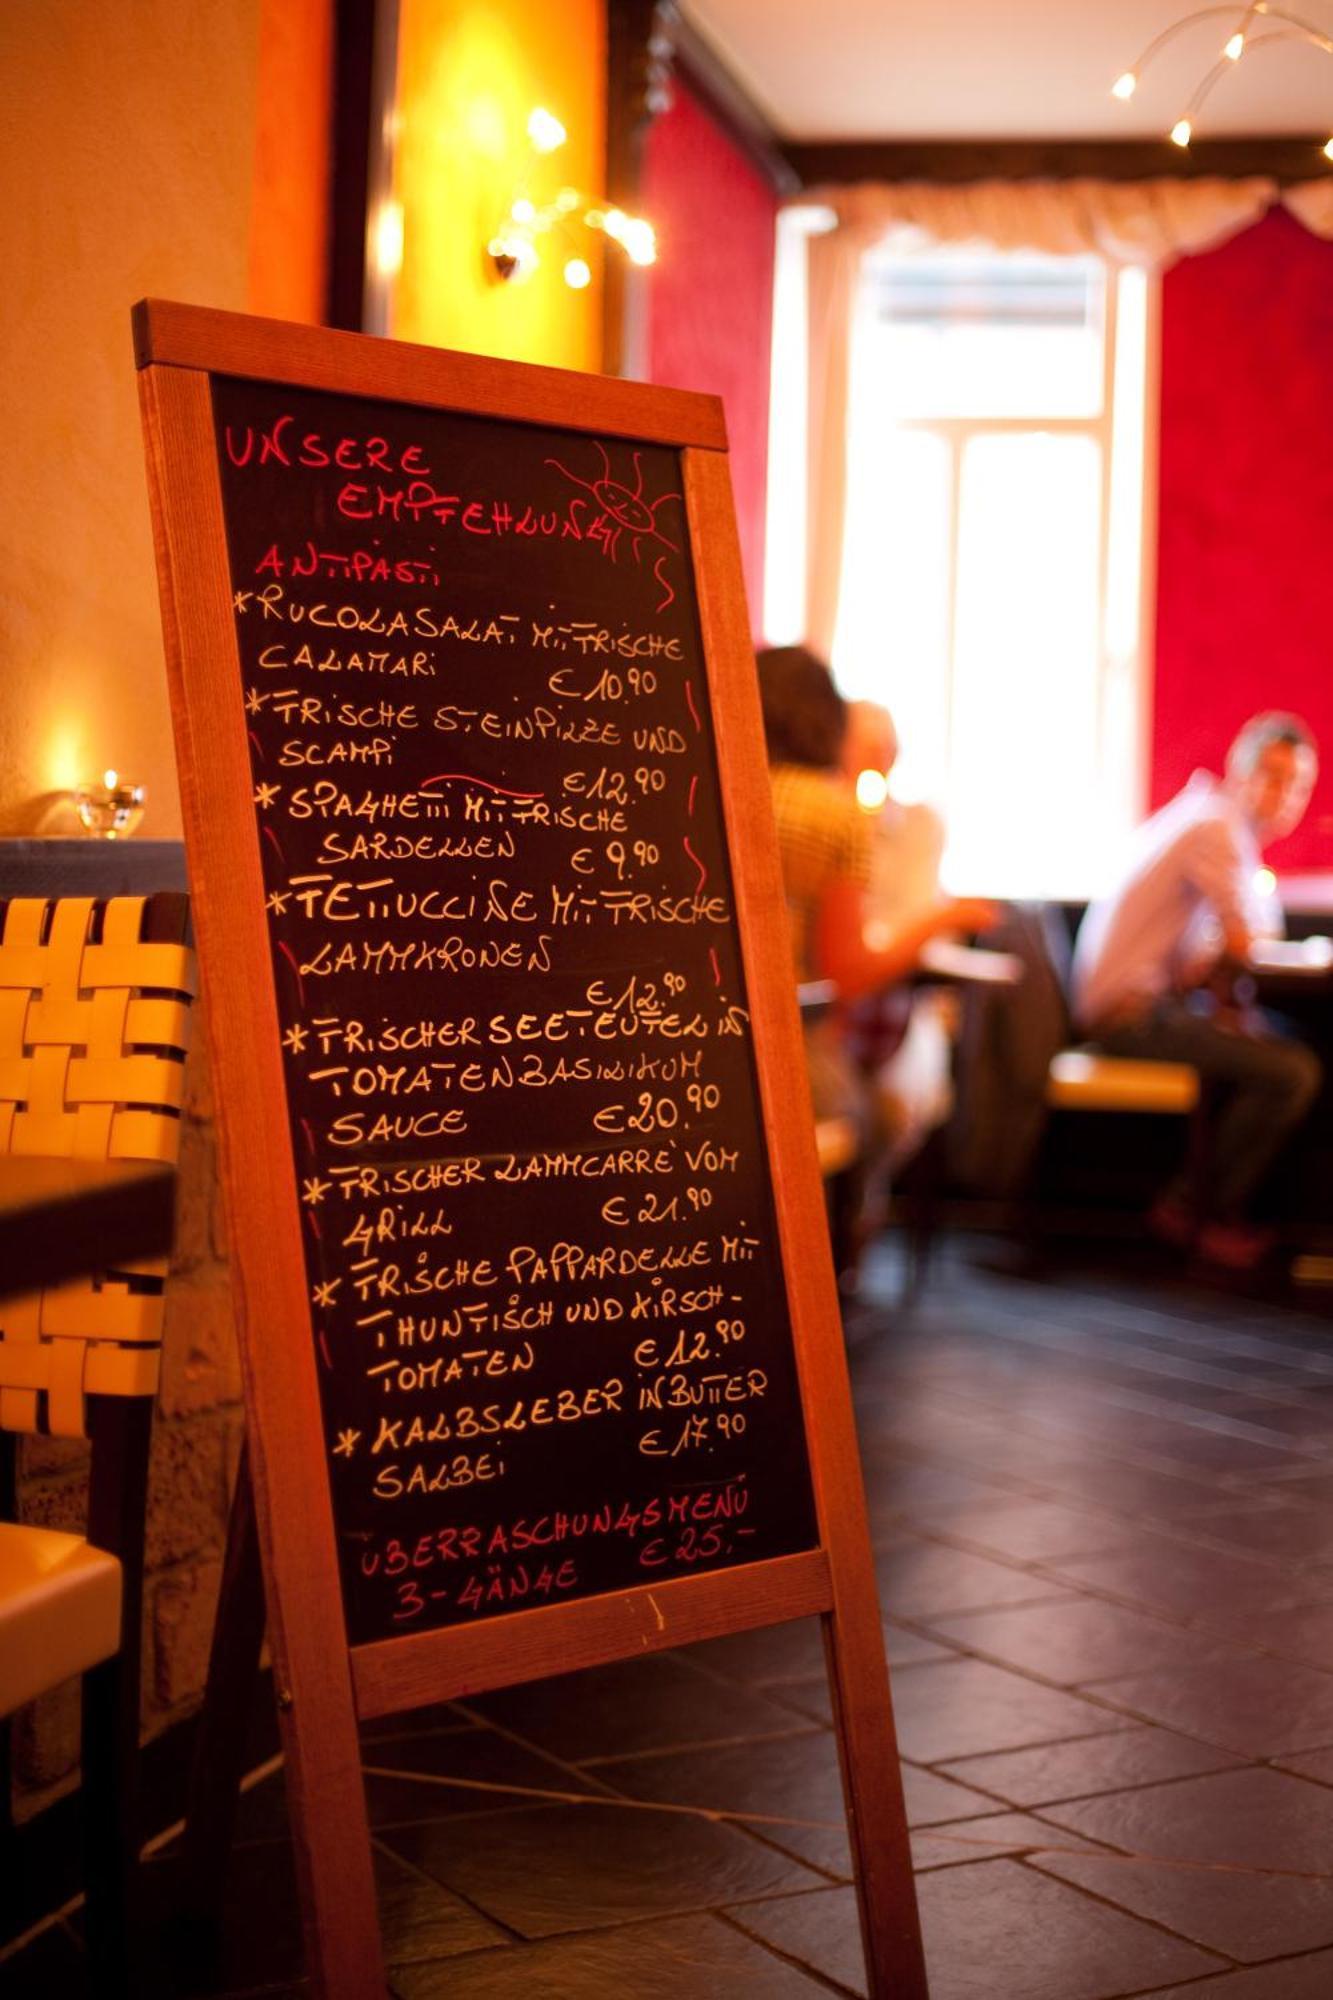 UNSERE
EMPFEHLUNG
ANTIPASTI
* RUCOLASALAT MIT FRISCHE
CALAMARI € 10.90
* FRISCHE STEINPILZE UND
SCAMPI € 12.90
* SPAGHETTI MIT FRISCHE
SARDELLEN € 9.90
* FETTUCCINE MIT FRISCHE
LAMMKRONEN
€ 12.90
* FRISCHER SEETEUFEL IN
TOMATENBASILIKUM
SAUCE € 20.90
* FRISCHER LAMMCARRÈ VOM
GRILL € 21.90
* FRISCHE PAPPARDELLE MIT
THUNFISCH UND KIRSCH-
TOMATEN € 12.90
* KALBSLEBER IN BUTTER
SALBEI € 17.90
ÜBERRASCHUNGSMENÜ
3-GÄNGE € 25.-